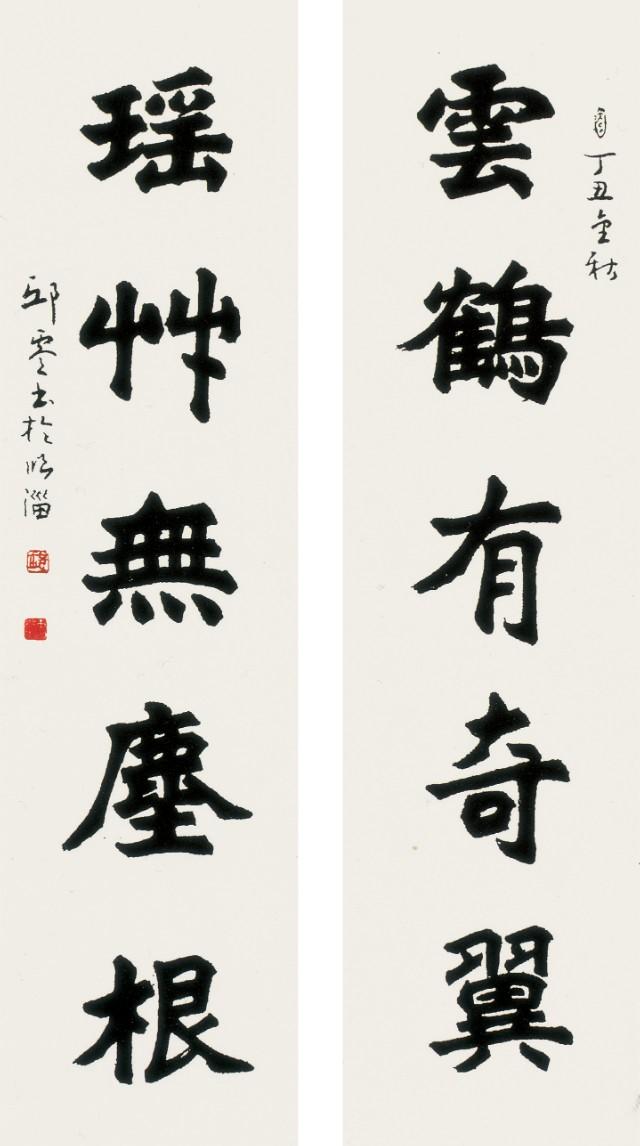 雲鶴有奇翼
丁丑金秋
瑶艸無塵根
邱零書於臨淄